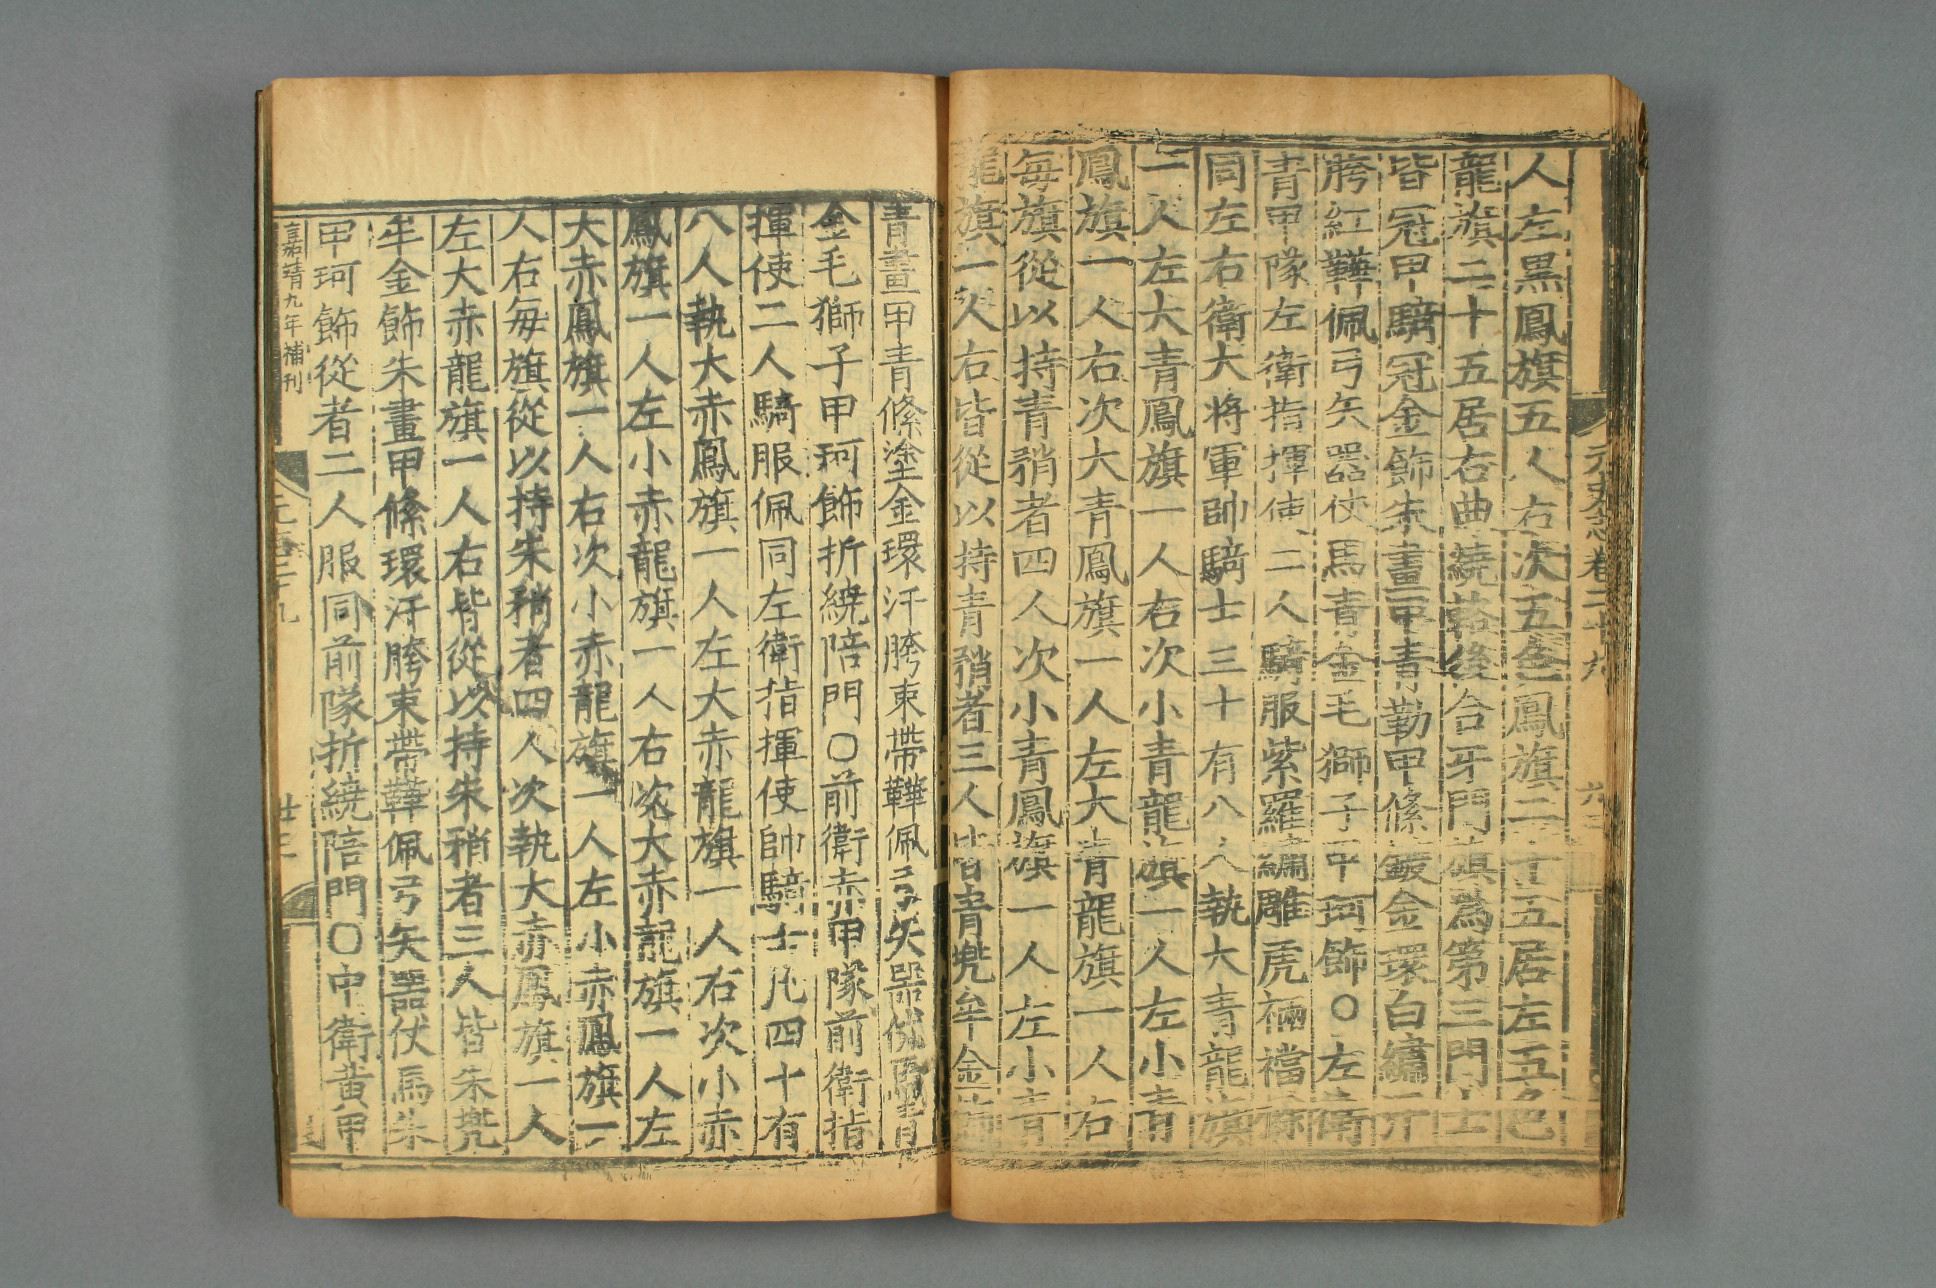 元史志卷二十九
人左黑鳳旗五人右次五色鳳旗二十五居左五色
龍旗二十五居右曲繞輅後合牙門旗為第三門士
皆冠甲騎冠金飾朱畫甲青勒甲絛鍍金環白繡汗
胯紅鞾佩弓矢器仗馬青金毛獅子甲珂飾○左衛
青甲隊左衛指揮使二人騎服紫羅繡雕虎裲襠餘
同左右衛大將軍帥騎士三十有八人執大青龍旗
一人左大青鳳旗一人右次小青龍旗一人左小青
鳳旗一人右次大青鳳旗一人左大青龍旗一人右
每旗從以持青矟者四人次小青鳳旗一人左小青
龍旗一人右皆從以持青矟者三人皆青兜牟金飾
青畫甲青絛塗金環汗胯束帶鞾佩弓矢器仗馬青
金毛獅子甲珂飾折繞陪門○前衛赤甲隊前衛指
揮使二人騎服佩同左衛指揮使帥騎士凡四十有
八人執大赤鳳旗一人左大赤龍旗一人右次小赤
鳳旗一人左小赤龍旗一人右次大赤龍旗一人左
大赤鳳旗一人右次小赤龍旗一人左小赤鳳旗一
人右每旗從以持朱矟者四人次執大赤鳳旗一人
左大赤龍旗一人右皆從以持朱矟者三人皆朱兜
牟金飾朱畫甲絛環汗胯束帶鞾佩弓矢器仗馬朱
甲珂飾從者二人服同前隊折繞陪門○中衛黃甲
嘉靖九年補刊